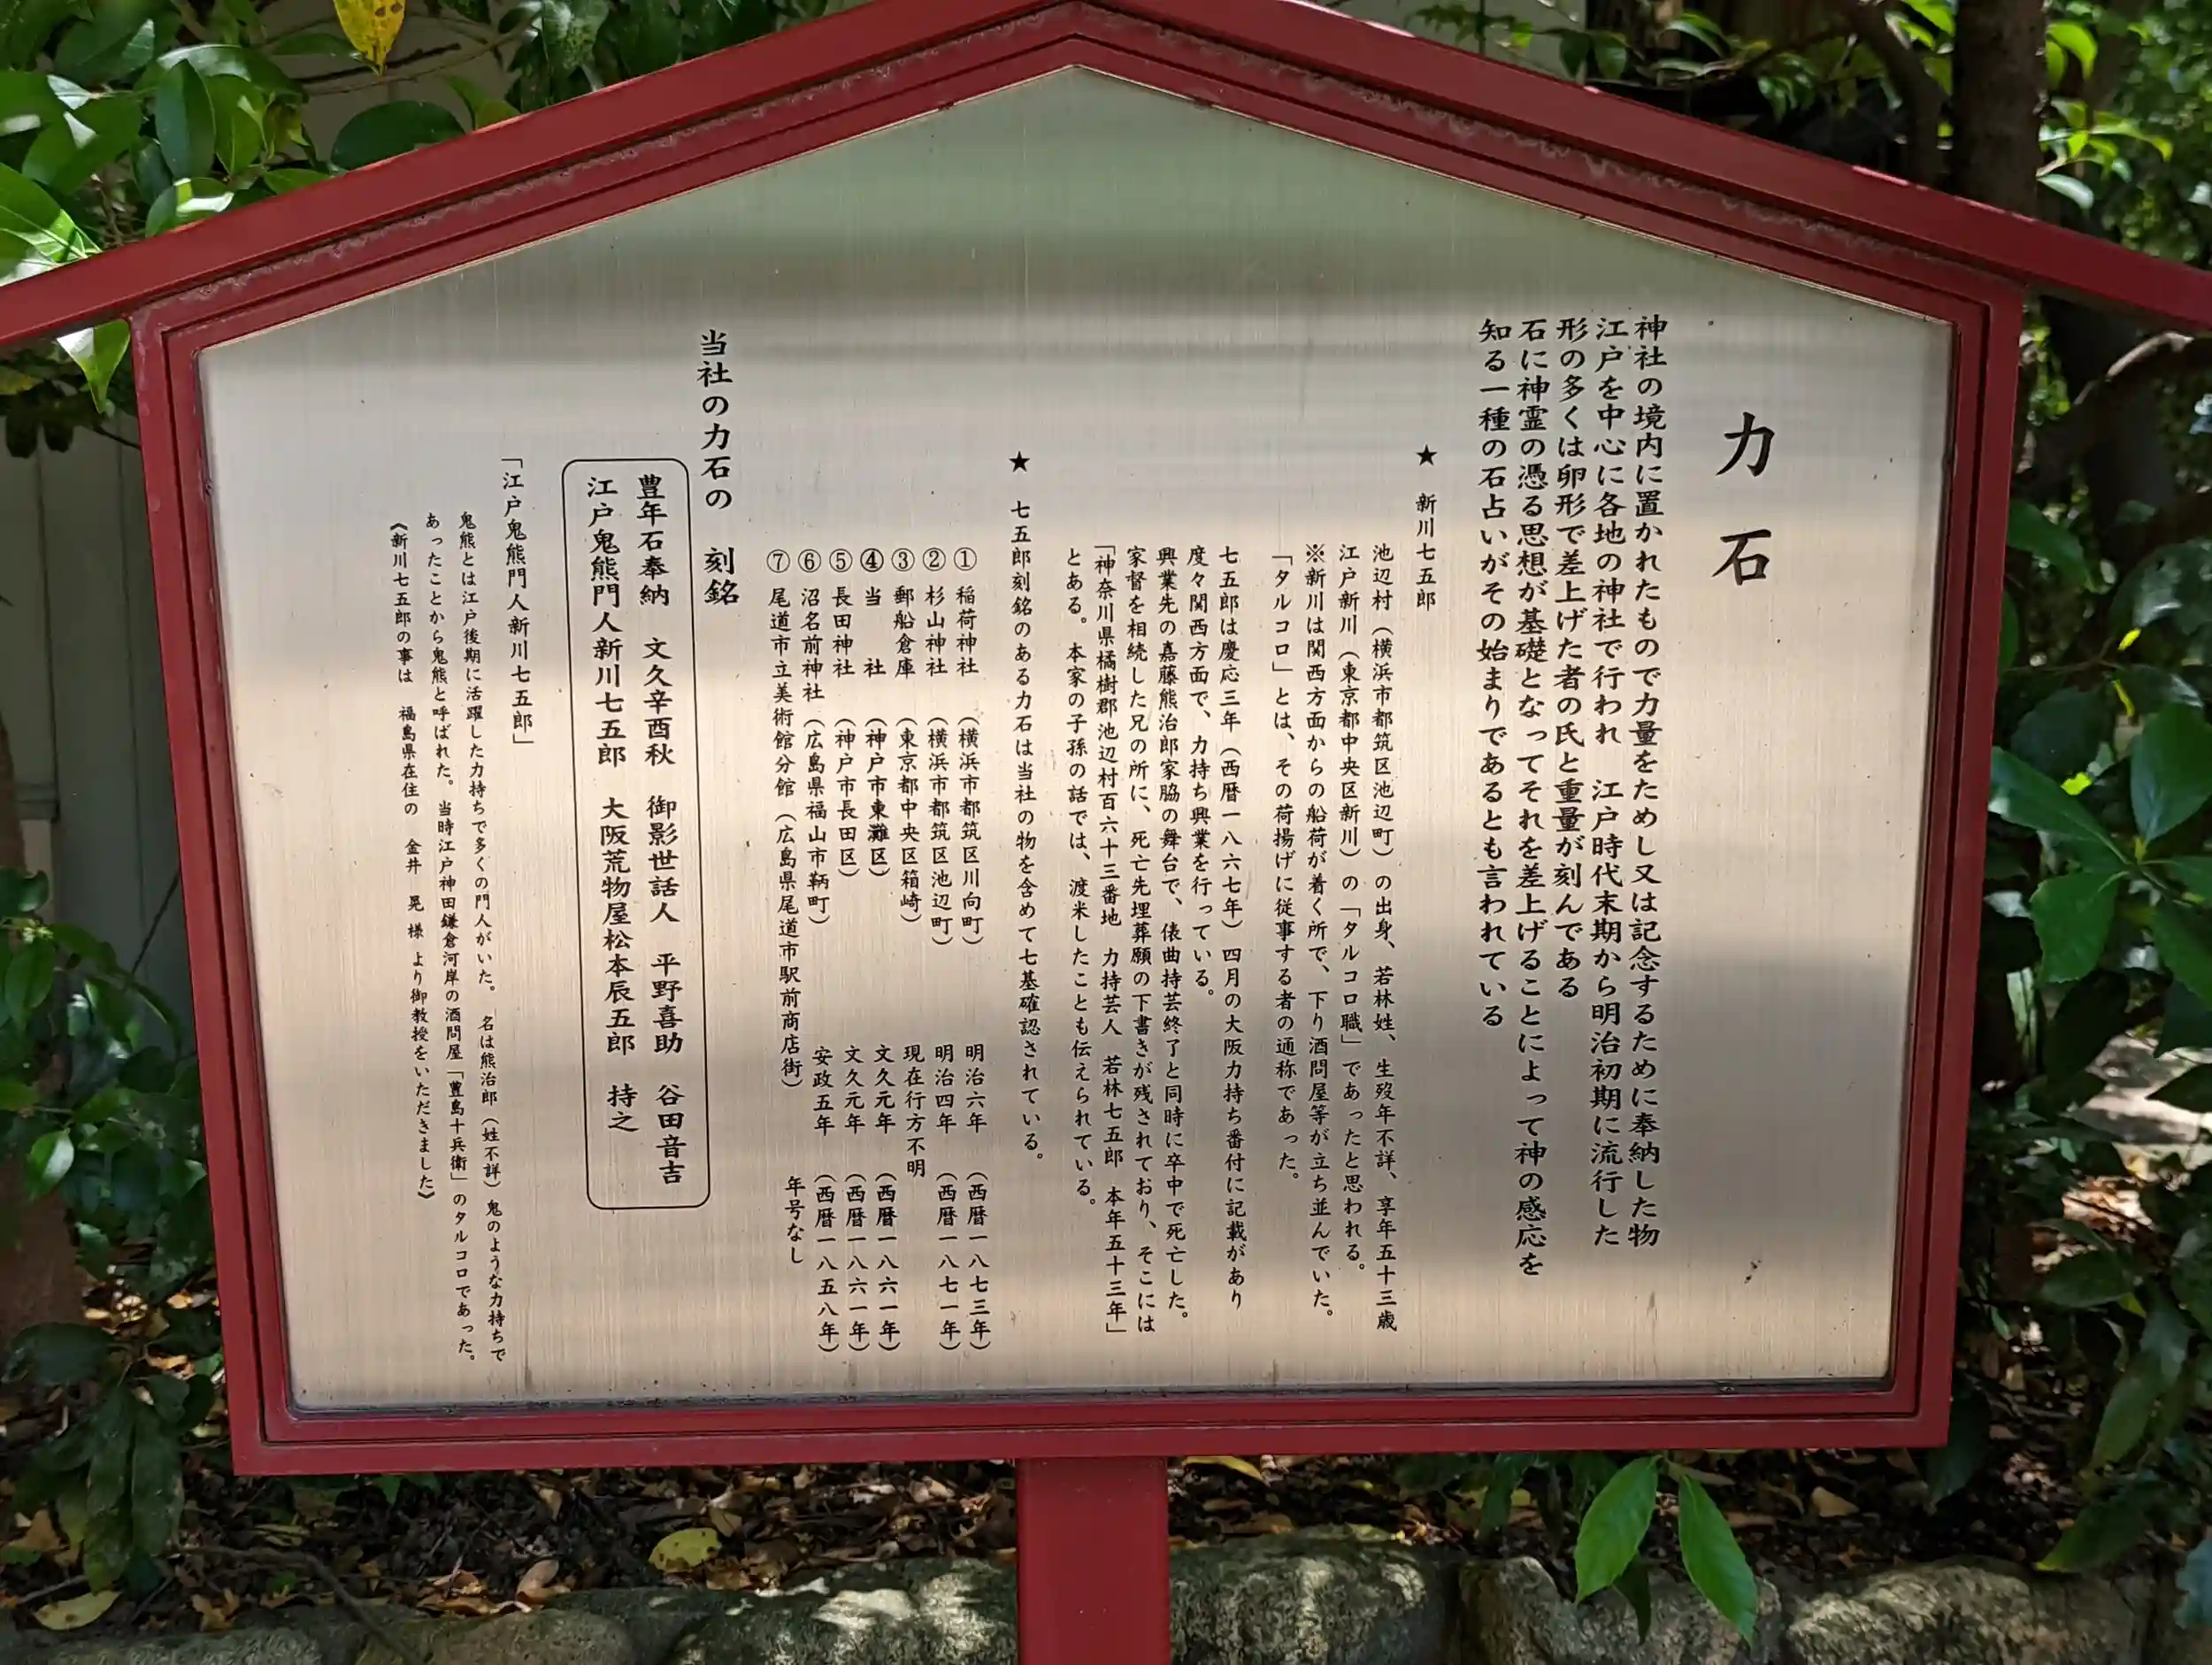 力石
神社の境内に置かれたもので力量をためし又は記念するために奉納した物
江戸を中心に各地の神社で行われ　江戸時代末期から明治初期に流行した
形の多くは卵形で差上げた者の氏と重量が刻んである
石に神霊の憑る思想が基礎となってそれを差上げることによって神の感応を
知る一種の石占いがその始まりであるとも言われている
★　新川七五郎
池辺村（横浜市都筑区池辺町）の出身、若林姓、生歿年不詳、享年五十三歳
江戸新川（東京都中央区新川）の「タルコロ職」であったと思われる。
※新川は関西方面からの船荷が着く所で、下り酒問屋等が立ち並んでいた。
「タルコロ」とは、その荷揚げに従事する者の通称であった。
七五郎は慶応三年（西暦一八六七年）四月の大阪力持ち番付に記載があり
度々関西方面で、力持ち興業を行っている。
興業先の嘉藤熊治郎家脇の舞台で、俵曲持芸終了と同時に卒中で死亡した。
家督を相続した兄の所に、死亡先埋葬願の下書きが残されており、そこには
「神奈川県橘樹郡池辺村百六十三番地　力持芸人　若林七五郎　本年五十三年」
とある。本家の子孫の話では、渡米したことも伝えられている。
★　七五郎刻銘のある力石は当社の物を含めて七基確認されている。
①　稲荷神社　（横浜市都筑区川向町）　明治六年　（西暦一八七三年）
②　杉山神社　（横浜市都筑区池辺町）　明治四年　（西暦一八七一年）
③　郵船倉庫　（東京都中央区箱崎）　現在行方不明
④　当　　社　（神戸市東灘区）　文久元年　（西暦一八六一年）
⑤　長田神社　（神戸市長田区）　文久元年　（西暦一八六一年）
⑥　沼名前神社（広島県福山市鞆町）　安政五年　（西暦一八五八年）
⑦　尾道市立美術館分館（広島県尾道市駅前商店街）　年号なし
当社の力石の　刻銘
豊年石奉納　文久辛酉秋　御影世話人　平野喜助　谷田音吉
江戸鬼熊門人新川七五郎　大阪荒物屋松本辰五郎　持之
「江戸鬼熊門人新川七五郎」
鬼熊とは江戸後期に活躍した力持ちで多くの門人がいた。　名は熊治郎（姓不詳）鬼のような力持ちで
あったことから鬼熊と呼ばれた。当時江戸神田鎌倉河岸の酒問屋「豊島十兵衛」のタルコロであった。
《新川七五郎の事は　福島県在住の　金井　晃　様　より御教授をいただきました》